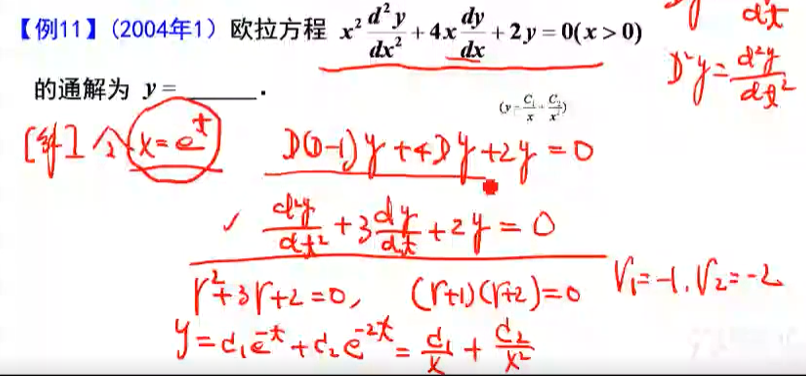 【例11】(2004年1) 欧拉方程 x² d²y/dx² + 4x dy/dx + 2y = 0(x > 0)
的通解为 y = ______.
(y = C₁/x + C₂/x²)
dt
D²y = d²y/dt²
[解] 令 x = eᵗ
D(D-1)y + 4Dy + 2y = 0
✓ d²y/dt² + 3 dy/dt + 2y = 0
r² + 3r + 2 = 0, (r+1)(r+2) = 0 r₁ = -1, r₂ = -2
y = C₁e⁻ᵗ + C₂e⁻²ᵗ = C₁/x + C₂/x²